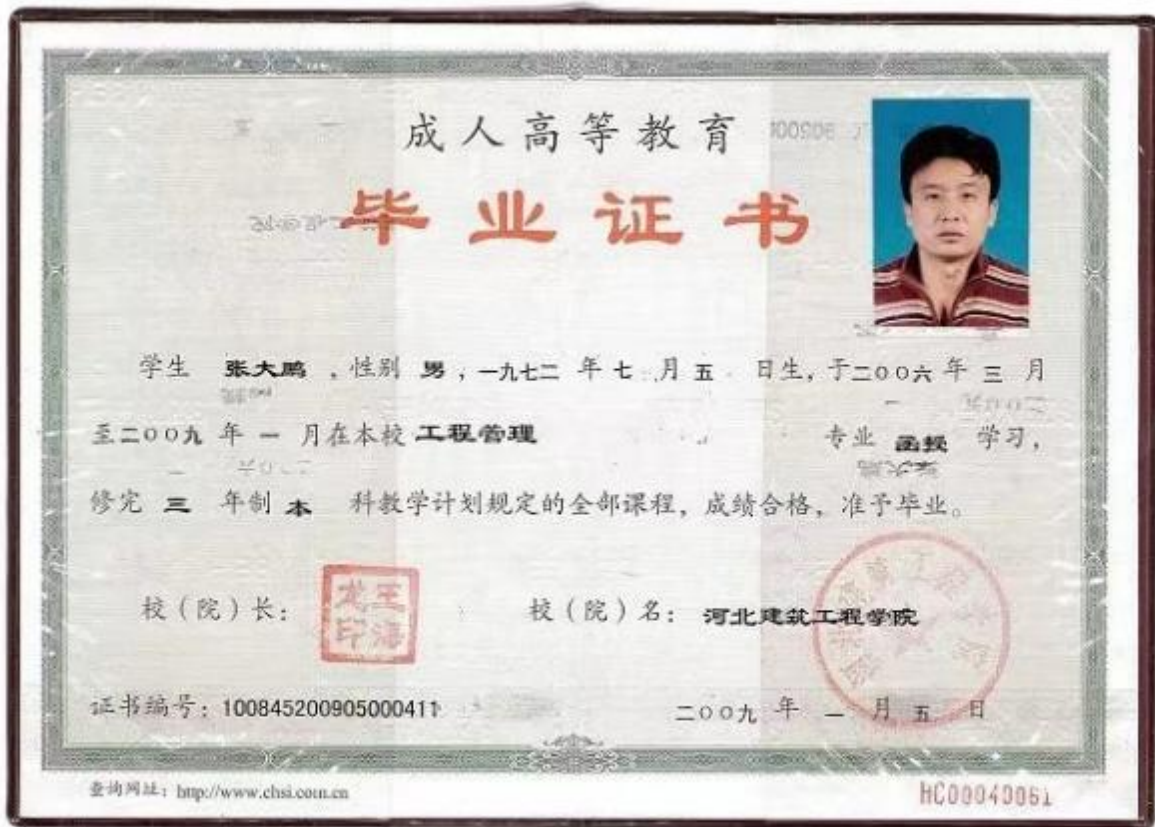 成人高等教育
毕业证书
学生 张大鹏 ，性别 男 ，一九七二 年 七 月 五 日生，于二〇〇六 年 三 月
至二〇〇九 年 一 月在本校 工程管理 专业 函授 学习，
修完 三 年制 本 科教学计划规定的全部课程，成绩合格，准予毕业。
校（院）长： 王海龙印 校（院）名： 河北建筑工程学院
证书编号：100845200905000411 二〇〇九 年 一 月 五 日
查询网址：http://www.chsi.com.cn HC00040061